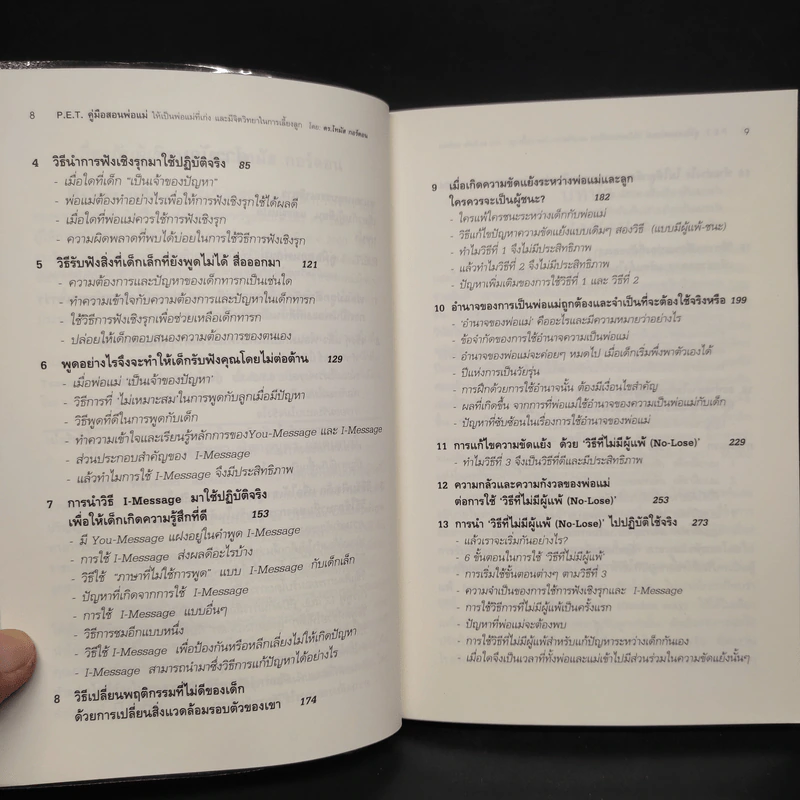 8 P.E.T. คู่มือสอนพ่อแม่ ให้เป็นพ่อแม่ที่เก่ง และมีจิตวิทยาในการเลี้ยงลูก โดย ดร.โทมัส กอร์ดอน
4 วิธีนำการฟังเชิงรุกมาใช้ปฏิบัติจริง 85
- เมื่อใดที่เด็ก "เป็นเจ้าของปัญหา"
- พ่อแม่ต้องทำอย่างไรเพื่อให้การฟังเชิงรุกใช้ได้ผลดี
- เมื่อใดที่พ่อแม่ควรใช้การฟังเชิงรุก
- ความผิดพลาดที่พบได้บ่อยในการใช้วิธีการฟังเชิงรุก
5 วิธีรับฟังสิ่งที่เด็กเล็กที่ยังพูดไม่ได้ สื่อออกมา 121
- ความต้องการและปัญหาของเด็กทารกเป็นเช่นใด
- ทำความเข้าใจกับความต้องการและปัญหาในเด็กทารก
- ใช้วิธีการฟังเชิงรุกเพื่อช่วยเหลือเด็กทารก
- ปล่อยให้เด็กตอบสนองความต้องการของตนเอง
6 พูดอย่างไรจึงจะทำให้เด็กรับฟังคุณโดยไม่ต่อต้าน 129
- เมื่อพ่อแม่ 'เป็นเจ้าของปัญหา'
- วิธีการที่ 'ไม่เหมาะสม' ในการพูดกับลูกเมื่อมีปัญหา
- วิธีพูดที่ดีในการพูดกับเด็ก
- ทำความเข้าใจและเรียนรู้หลักการของYou-Message และ I-Message
- ส่วนประกอบสำคัญของ I-Message
- แล้วทำไมการใช้ I-Message จึงมีประสิทธิภาพ
7 การนำวิธี I-Message มาใช้ปฏิบัติจริง
เพื่อให้เด็กเกิดความรู้สึกที่ดี 153
- มี You-Message แฝงอยู่ในคำพูด I-Message
- การใช้ I-Message ส่งผลดีอะไรบ้าง
- วิธีใช้ "ภาษาที่ไม่ใช้การพูด" แบบ I-Message กับเด็กเล็ก
- ปัญหาที่เกิดจากการใช้ I-Message
- การใช้ I-Message แบบอื่นๆ
- วิธีการชมอีกแบบหนึ่ง
- วิธีใช้ I-Message เพื่อป้องกันหรือหลีกเลี่ยงไม่ให้เกิดปัญหา
- I-Message สามารถนำมาซึ่งวิธีการแก้ปัญหาได้อย่างไร
8 วิธีเปลี่ยนพฤติกรรมที่ไม่ดีของเด็ก
ด้วยการเปลี่ยนสิ่งแวดล้อมรอบตัวของเขา 174
9
9 เมื่อเกิดความขัดแย้งระหว่างพ่อแม่และลูก
ใครควรจะเป็นผู้ชนะ? 182
- ใครแพ้ใครชนะระหว่างเด็กกับพ่อแม่
- วิธีแก้ไขปัญหาความขัดแย้งแบบเดิมๆ สองวิธี (แบบมีผู้แพ้-ชนะ)
- ทำไมวิธีที่ 1 จึงไม่มีประสิทธิภาพ
- แล้วทำไมวิธีที่ 2 จึงไม่มีประสิทธิภาพ
- ปัญหาเพิ่มเติมของการใช้วิธีที่ 1 และ วิธีที่ 2
10 อำนาจของการเป็นพ่อแม่ถูกต้องและจำเป็นที่จะต้องใช้จริงหรือ 199
- 'อำนาจของพ่อแม่' คืออะไรและมีความหมายว่าอย่างไร
- ข้อจำกัดของการใช้อำนาจความเป็นพ่อแม่
- อำนาจของพ่อแม่จะค่อยๆ หมดไป เมื่อเด็กเริ่มพึ่งพาตัวเองได้
- ปีแห่งการเป็นวัยรุ่น
- การฝึกด้วยการใช้อำนาจนั้น ต้องมีเงื่อนไขสำคัญ
- ผลที่เกิดขึ้น จากการที่พ่อแม่ใช้อำนาจของความเป็นพ่อแม่กับเด็ก
- ปัญหาที่ซับซ้อนในเรื่องการใช้อำนาจของพ่อแม่
11 การแก้ไขความขัดแย้ง ด้วย 'วิธีที่ไม่มีผู้แพ้ (No-Lose)' 229
- ทำไมวิธีที่ 3 จึงเป็นวิธีที่ดีและมีประสิทธิภาพ
12 ความกลัวและความกังวลของพ่อแม่
ต่อการใช้ 'วิธีที่ไม่มีผู้แพ้ (No-Lose)' 253
13 การนำ 'วิธีที่ไม่มีผู้แพ้ (No-Lose)' ไปปฏิบัติใช้จริง 273
- แล้วเราจะเริ่มกันอย่างไร?
- 6 ขั้นตอนในการใช้ 'วิธีที่ไม่มีผู้แพ้'
- การเริ่มใช้ขั้นตอนต่างๆ ตามวิธีที่ 3
- ความจำเป็นของการใช้การฟังเชิงรุกและ I-Message
- การใช้วิธีการที่ไม่มีผู้แพ้เป็นครั้งแรก
- ปัญหาที่พ่อแม่จะต้องพบ
- การใช้วิธีที่ไม่มีผู้แพ้สำหรับแก้ปัญหาระหว่างเด็กกันเอง
- เมื่อใดจึงเป็นเวลาที่ทั้งพ่อและแม่เข้าไปมีส่วนร่วมในความขัดแย้งนั้นๆ